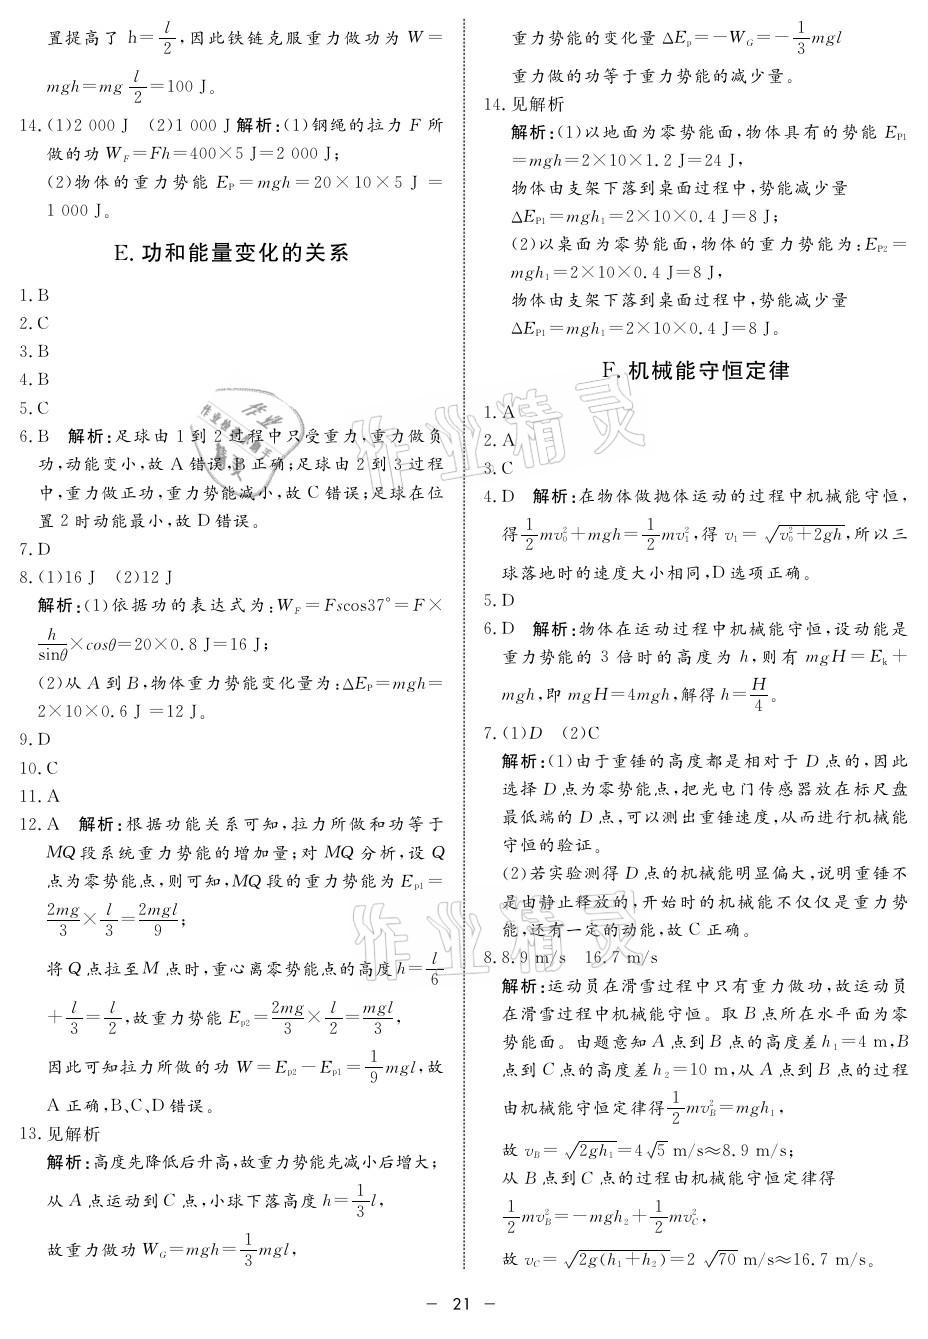 置提高了 h=l/2,因此铁链克服重力做功为 W=
mgh=mg l/2=100 J。
14.(1)2 000 J (2)1 000 J 解析:(1)钢绳的拉力 F 所
做的功 W_F=Fh=400×5 J=2 000 J;
(2)物体的重力势能 E_P=mgh=20×10×5 J=
1 000 J。
E.功和能量变化的关系
1.B
2.C
3.B
4.B
5.C
6.B 解析:足球由 1 到 2 过程中只受重力,重力做负
功,动能变小,故 A 错误,B 正确;足球由 2 到 3 过程
中,重力做正功,重力势能减小,故 C 错误;足球在位
置 2 时动能最小,故 D 错误。
7.D
8.(1)16 J (2)12 J
解析:(1)依据功的表达式为:W_F=Fscos37°=F×
h/sinθ×cosθ=20×0.8 J=16 J;
(2)从 A 到 B,物体重力势能变化量为:ΔE_P=mgh=
2×10×0.6 J =12 J。
9.D
10.C
11.A
12.A 解析:根据功能关系可知,拉力所做和功等于
MQ 段系统重力势能的增加量;对 MQ 分析,设 Q
点为零势能点,则可知,MQ 段的重力势能为 E_p1=
2mg/3×l/3=2mgl/9;
将 Q 点拉至 M 点时,重心离零势能点的高度 h=l/6
+l/3=l/2,故重力势能 E_p2=2mg/3×l/2=mgl/3,
因此可知拉力所做的功 W=E_p2-E_p1=1/9 mgl,故
A 正确,B、C、D 错误。
13.见解析
解析:高度先降低后升高,故重力势能先减小后增大;
从 A 点运动到 C 点,小球下落高度 h=1/3 l,
故重力做功 W_G=mgh=1/3 mgl,
重力势能的变化量 ΔE_p=-W_G=-1/3 mgl
重力做的功等于重力势能的减少量。
14.见解析
解析:(1)以地面为零势能面,物体具有的势能 E_P1
=mgh=2×10×1.2 J=24 J,
物体由支架下落到桌面过程中,势能减少量
ΔE_P1=mgh₁=2×10×0.4 J=8 J;
(2)以桌面为零势能面,物体的重力势能为:E_P2=
mgh₁=2×10×0.4 J=8 J,
物体由支架下落到桌面过程中,势能减少量
ΔE_P1=mgh₁=2×10×0.4 J=8 J。
F.机械能守恒定律
1.A
2.A
3.C
4.D 解析:在物体做抛体运动的过程中机械能守恒,
得1/2 mv₀²+mgh=1/2 mv₁²,得 v₁=√(v₀²+2gh),所以三
球落地时的速度大小相同,D 选项正确。
5.D
6.D 解析:物体在运动过程中机械能守恒,设动能是
重力势能的 3 倍时的高度为 h,则有 mgH=E_k+
mgh,即 mgH=4mgh,解得 h=H/4。
7.(1)D (2)C
解析:(1)由于重锤的高度都是相对于 D 点的,因此
选择 D 点为零势能点,把光电门传感器放在标尺盘
最低端的 D 点,可以测出重锤速度,从而进行机械能
守恒的验证。
(2)若实验测得 D 点的机械能明显偏大,说明重锤不
是由静止释放的,开始时的机械能不仅仅是重力势
能,还有一定的动能,故 C 正确。
8.8.9 m/s 16.7 m/s
解析:运动员在滑雪过程中只有重力做功,故运动员
在滑雪过程中机械能守恒。取 B 点所在水平面为零
势能面。由题意知 A 点到 B 点的高度差 h₁=4 m,B
点到 C 点的高度差 h₂=10 m,从 A 点到 B 点的过程
由机械能守恒定律得1/2 mv_B²=mgh₁,
故 v_B=√(2gh₁)=4√5 m/s≈8.9 m/s;
从 B 点到 C 点的过程由机械能守恒定律得
1/2 mv_B²=-mgh₂+1/2 mv_C²,
故 v_C=√(2g(h₁+h₂))=2 √70 m/s≈16.7 m/s。
- 21 -
作业精灵
作业精灵